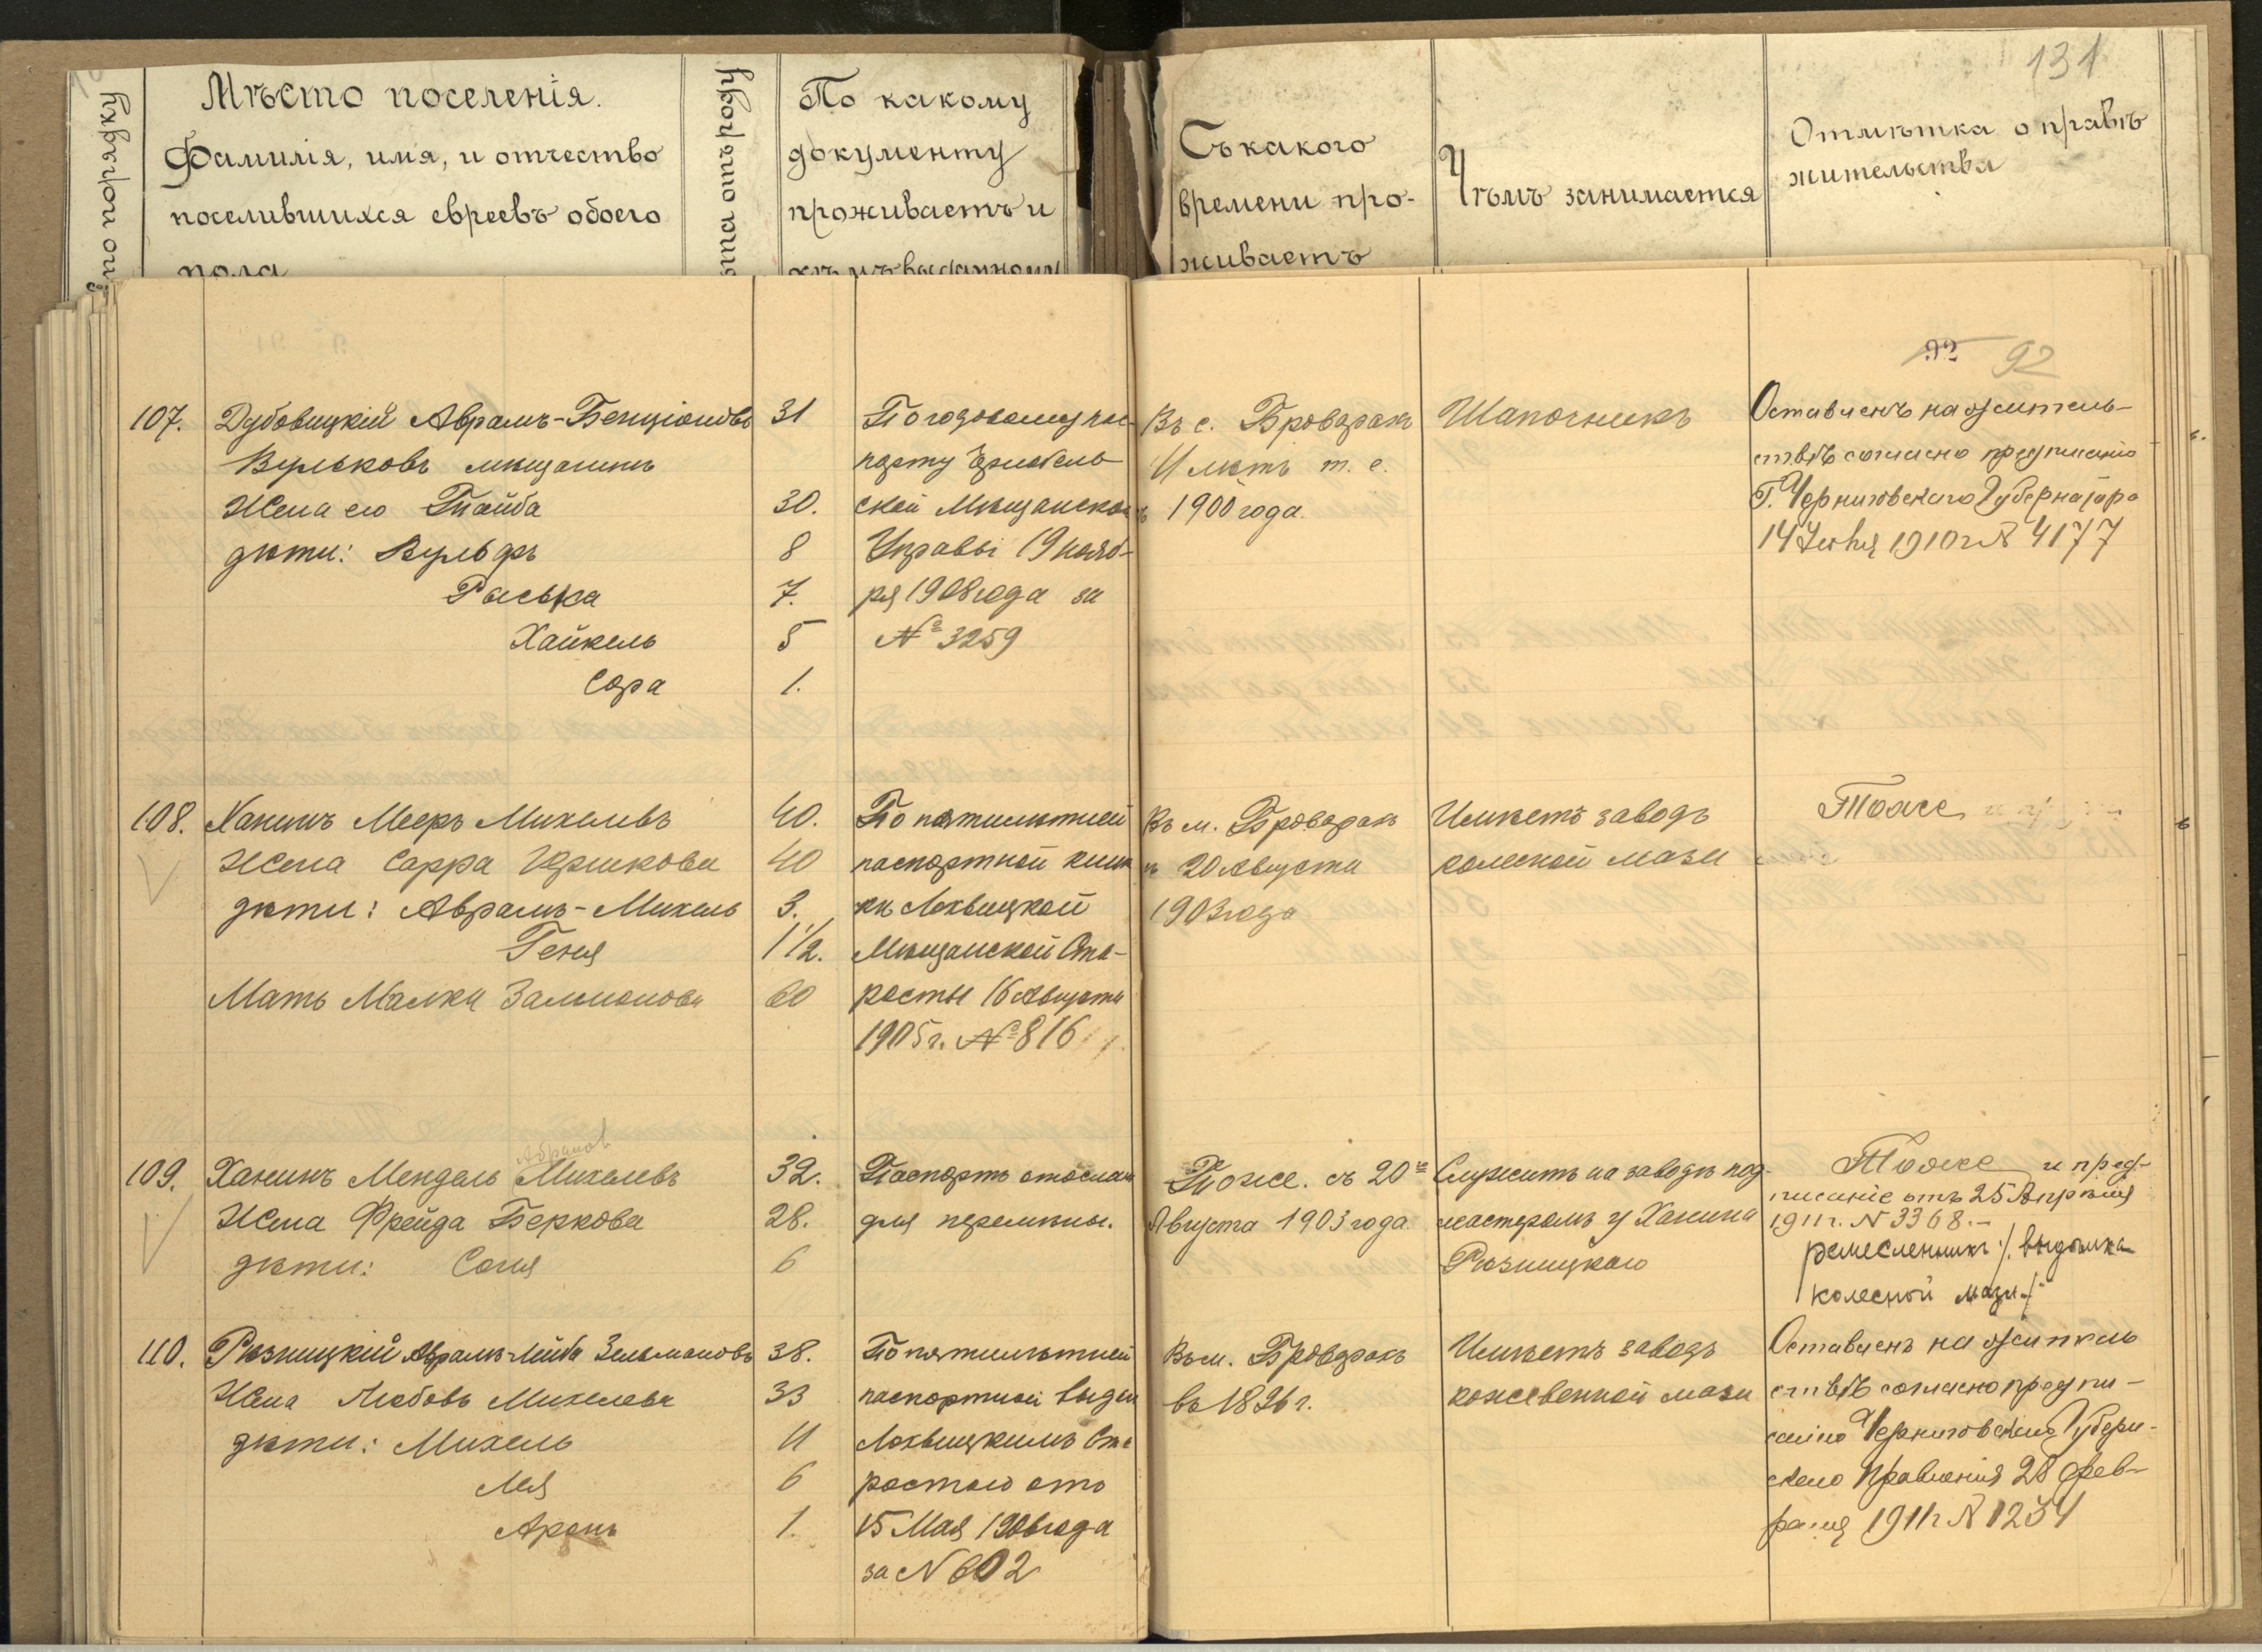 131
по порядку
Мѣсто поселенія.
Фамилія, имя, и отчество
поселившихся евреевъ обоего
пола
отъ роду
По какому
документу
проживаетъ и
Съ какого
времени про-
живаетъ
Чѣмъ занимается
Отмѣтка о правѣ
жительства
92 92
107. Дубовицкій Аврамъ-Бенціоновъ 31
Вульковъ мѣщанинъ
Жена его Тайба 30.
дѣти: Вульфъ 8
Раська 7.
Хайкель 5
Сора 1.
По годовому пас-
порту
ской Мѣщанской
Управы 19 нояб-
ря 1908 года за
№ 3259
Въ с. Броварахъ
съ 1900 года.
Шапочникъ
Оставленъ на житель-
ствѣ согласно предписанію
Г. Черниговскаго Губернатора
14 Іюня 1910 г № 4177
108. Ханинъ Мееръ Михелевъ 40.
Жена Сарра Гершкова 40
дѣти: Аврамъ-Михель 3.
Геня 1 1/2.
Мать Малка Залмонова 60
По пятилѣтней
паспортной книж
кѣ Лохвицкой
Мѣщанской Ста-
росты 16 Августа
1905 г. № 816
Въ м. Броварахъ
съ 20 Августа
1903 года
Имѣетъ заводъ
колесной мази
Тоже
109. Ханинъ Мендель Михелевъ 32.
Абрамов
Жена Фрейда Беркова 28.
дѣти: Соня 6
Паспортъ отосланъ
для перемѣны.
Тоже. съ 20го
Августа 1903 года
Служитъ на заводѣ под-
мастеромъ у Ханина
Рѣзницкаго
Тоже и пред-
писаніе отъ 25 Апрѣля
1911 г. № 3368.-
ремесленникъ /. выдѣлка
колесной мази./
110. Рѣзницкій Аврамъ-Лейба Зельмановъ 38.
Жена Любовь Михелева 33
дѣти: Михель 11
Лея 6
Аронъ 1.
По пятилѣтней
паспортной выдан
Лохвицкимъ Ста
ростою отъ
15 Мая 1906 года
за № 602
Въ м. Броварахъ
въ 1896 г.
Имѣетъ заводъ
кожевенной мази
Оставленъ на житель
ствѣ согласно предпи-
санію Черниговскаго Губерн-
скаго Правленія 28 фев-
раля 1911 г № 1234